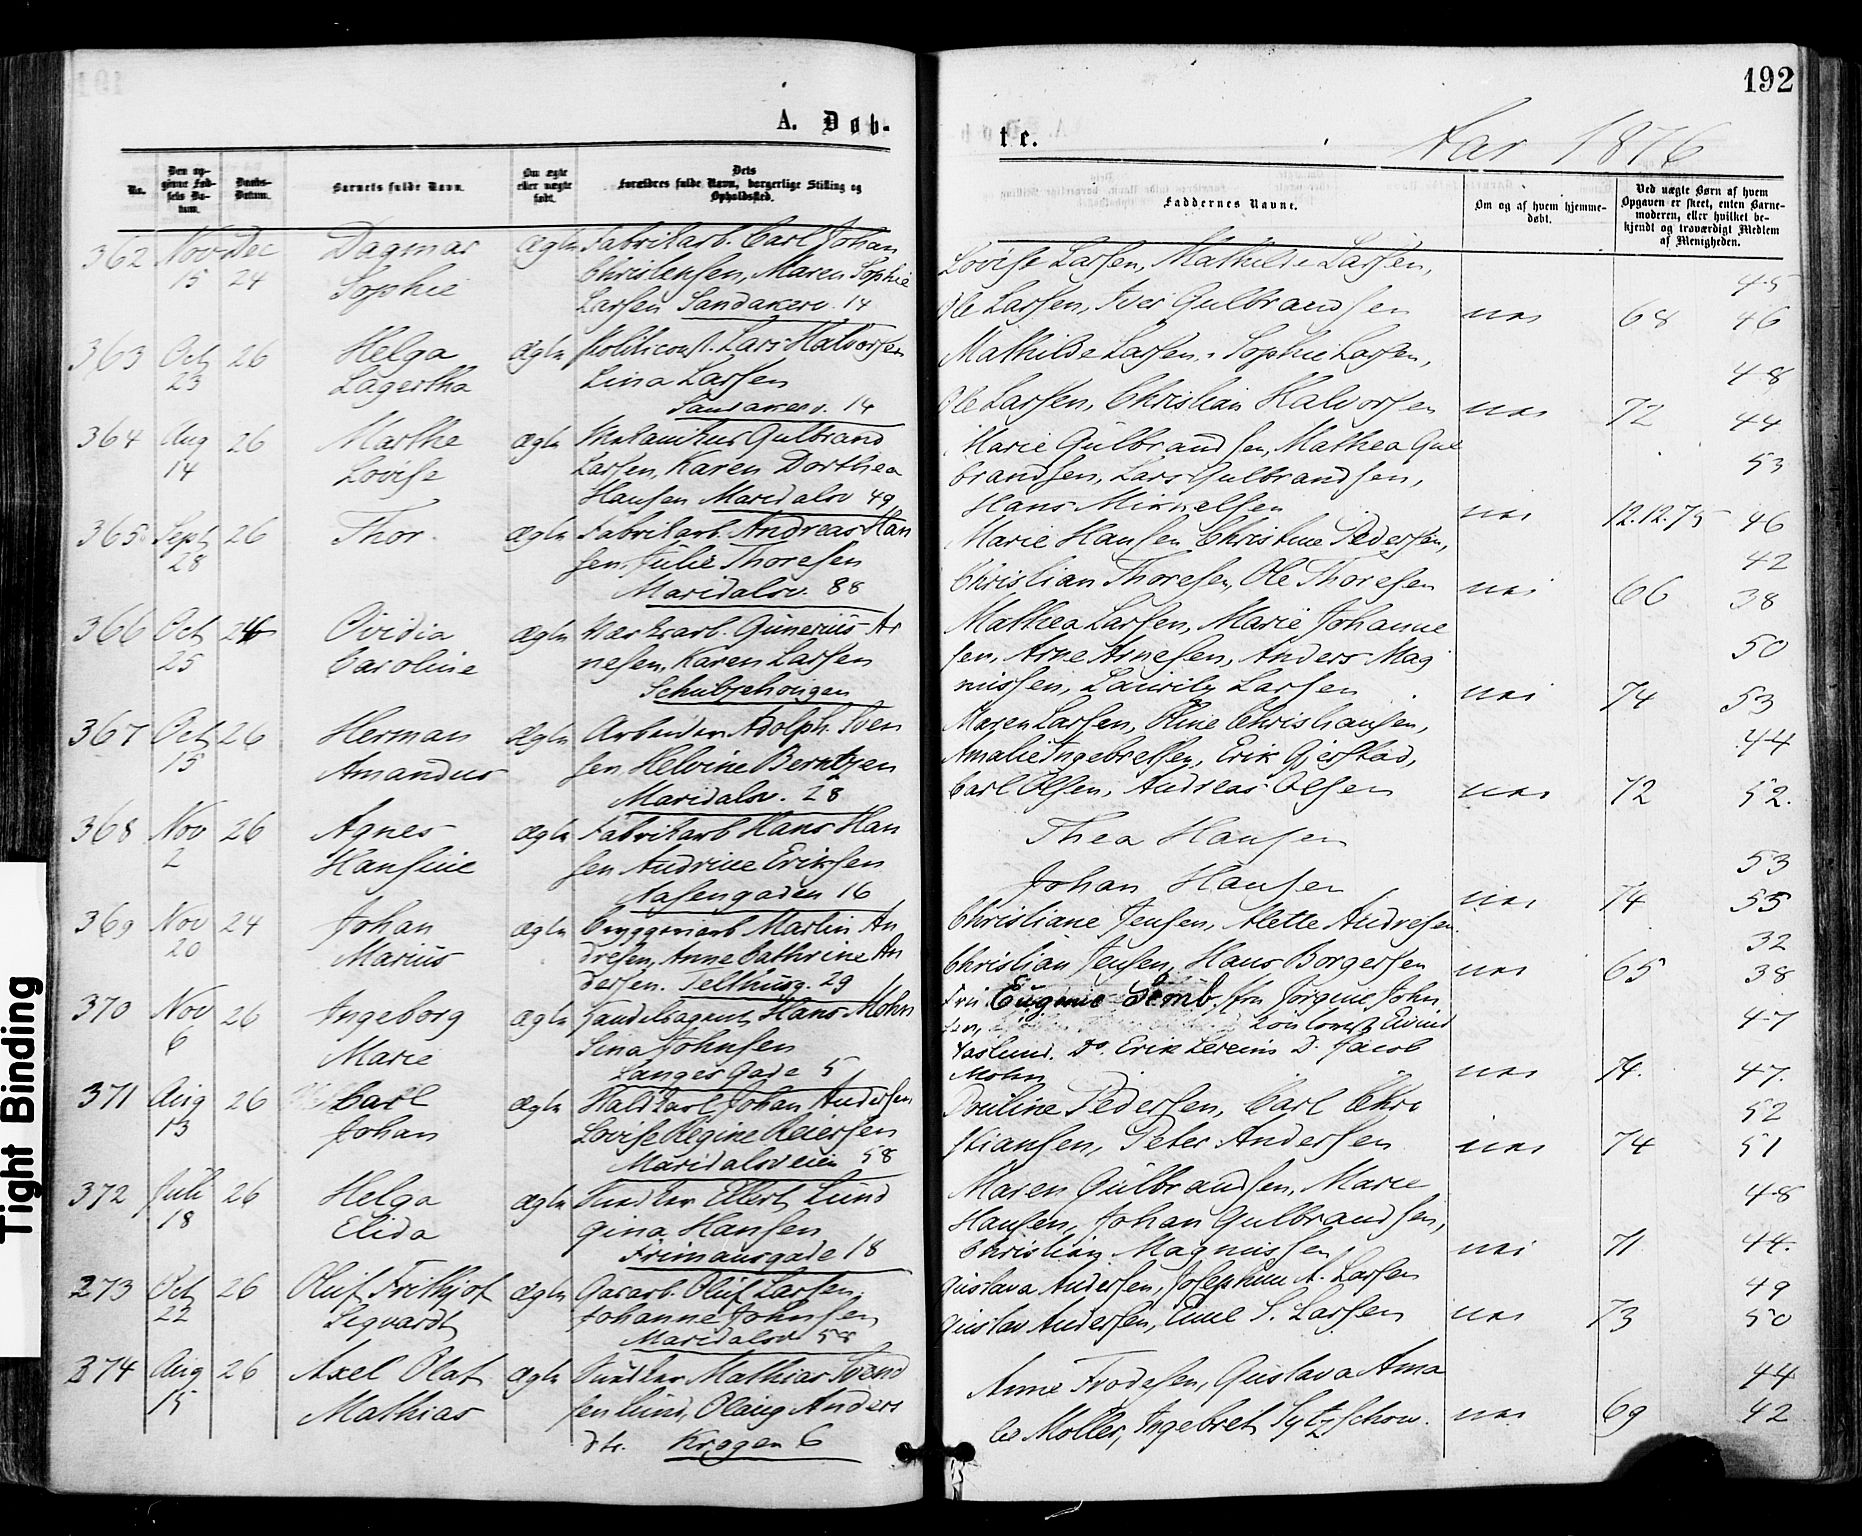 192
A. Døb-
te.
Aar 1876
No.
Den op-
givne Fød-
sels Da-
tum.
Daabs-
Datum.
Barnets fulde Navn.
Om ægte
eller uægte
født.
Dets
Forældres fulde Navn, borgerlige Stilling og
Opholdssted.
Faddernes Navne.
Om og af hvem hjemme-
døbt.
Ved uægte Børn af hvem
Opgaven er skeet, enten Barne-
moderen, eller hvilket be-
kjendt og troværdigt Medlem
af Menigheden.
362 Nov Dec Dagmar ægte Fabrikarb. Carl Johan
15 24 Sophie Christensen, Maren Sophie
Larsen Sandakerv. 14
Lovise Larsen, Mathilde Larsen, 45
Ole Larsen, Iver Gulbrandsen nei 68 46
363 Oct 26 Helga ægte Politiconst. Lars Halvorsen
23 Lagertha Lina Larsen
Sandakerv. 14
Mathilde Larsen, Sophie Larsen, 48
Ole Larsen, Christian Halvorsen nei 72 44
364 Aug 26 Marthe ægte Mekanikus Gulbrand
14 Lovise Larsen, Karen Dorthea
Hansen Maridalsv 49
Marie Gulbrandsen, Mathea Gul
brandsen, Lars Gulbrandsen, 53
Hans Mikkelsen nei 12.12.75 46
365 Sept 26 Thor ægte Fabrikarb. Andreas Han
28 sen, Julie Thoresen
Maridalsv. 88
Marie Hansen Christine Pedersen, 42
Christian Thoresen, Ole Thoresen nei 66 38
366 Oct 26 Ovidia ægte Værksarb. Gunerius Ar
25 Caroline nesen, Karen Larsen
Schultzehougen
Mathea Larsen, Marie Johanne
sen, Arne Arnesen, Anders Mag 50
nussen, Lauritz Larsen nei 74 53
367 Oct 26 Herman ægte Arbeider Adolph Sven
15 Amandus sen Helvine Berntzen
Maridalsv. 28
Maren Larsen, Oline Christiansen, 44
Amalie Ingebretsen, Erik Gjerstad,
Carl Olsen, Andreas Olsen nei 72 52.
368 Nov 26 Agnes ægte Fabrikarb Hans Han
2 Hansine sen Andrine Eriksen
Aasengaden 16
Thea Hansen 53
Johan Hansen nei 74 55
369 Nov 24 Johan ægte Bryggeriarb Martin An
20 Marius dresen, Anne Cathrine An
dersen. Telthusg. 29
Christiane Jensen, Mette Andresen 32
Christian Jensen, Hans Borgersen nei 65 38
370 Nov 26 Ingeborg ægte Handelsagent Hans Mohn
6 Marie Lina Johnsen
Langes Gade 5
Fru Eugenie Semb, Fru Jørgine John
sen, Eivind 47
Aaslund. Do. Erik D. Jacob
Mohn nei 74. 47.
371 Aug 26 Carl ægte Johan Andersen
13 Johan Lovise Regine Reiersen
Maridalsveien 58
Pauline Pedersen, Carl Chri 52
stiansen, Peter Andersen nei 74 51
372 Juli 26 Helga ægte Snedker Ellert Lund
18 Elida gina Hansen
Frimansgade 18
Maren Gulbrandsen, Marie 48
Hansen, Johan Gulbrandsen,
Christian Magnussen nei 71 44.
373 Oct 26 Oluf Frithjof ægte Oluf Larsen,
22 Sigvardt Johanne Johnsen
Maridalsv 58
Gustava Andersen, Josephine A. Larsen 49
Gustav Andersen, S. Larsen nei 73 50
374 Aug 26 Axel Olaf ægte Snedker Mathias Svend
15 Mathias sen Lund, Olaug Anders
dtr. Krogen 6
Anne Frodesen, Gustava Ama 44
lie Møller, Ingebret nei 69 42
Tight Binding